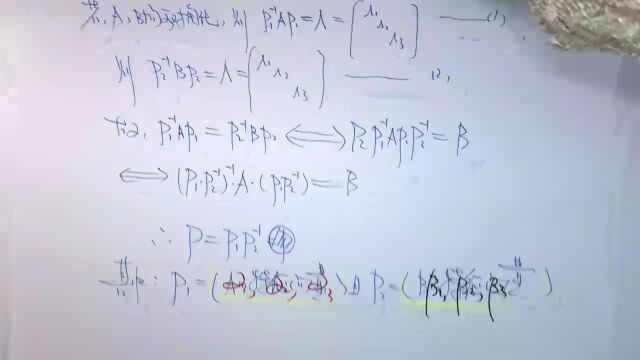 若, A, B均可对角化, 则 P₁⁻¹AP₁ = Λ = (λ₁ λ₂ λ₃) —— (1)
则 P₂⁻¹BP₂ = Λ = (λ₁ λ₂ λ₃) —— (2)
P₁⁻¹AP₁ = P₂⁻¹BP₂ ⟺ P₂P₁⁻¹AP₁P₂⁻¹ = B
⟺ (P₁·P₂⁻¹)⁻¹·A·(P₁P₂⁻¹) = B
∴ P = P₁P₂⁻¹
其中: P₁ = ( ) P₂ = (β₁, β₂, β₃)